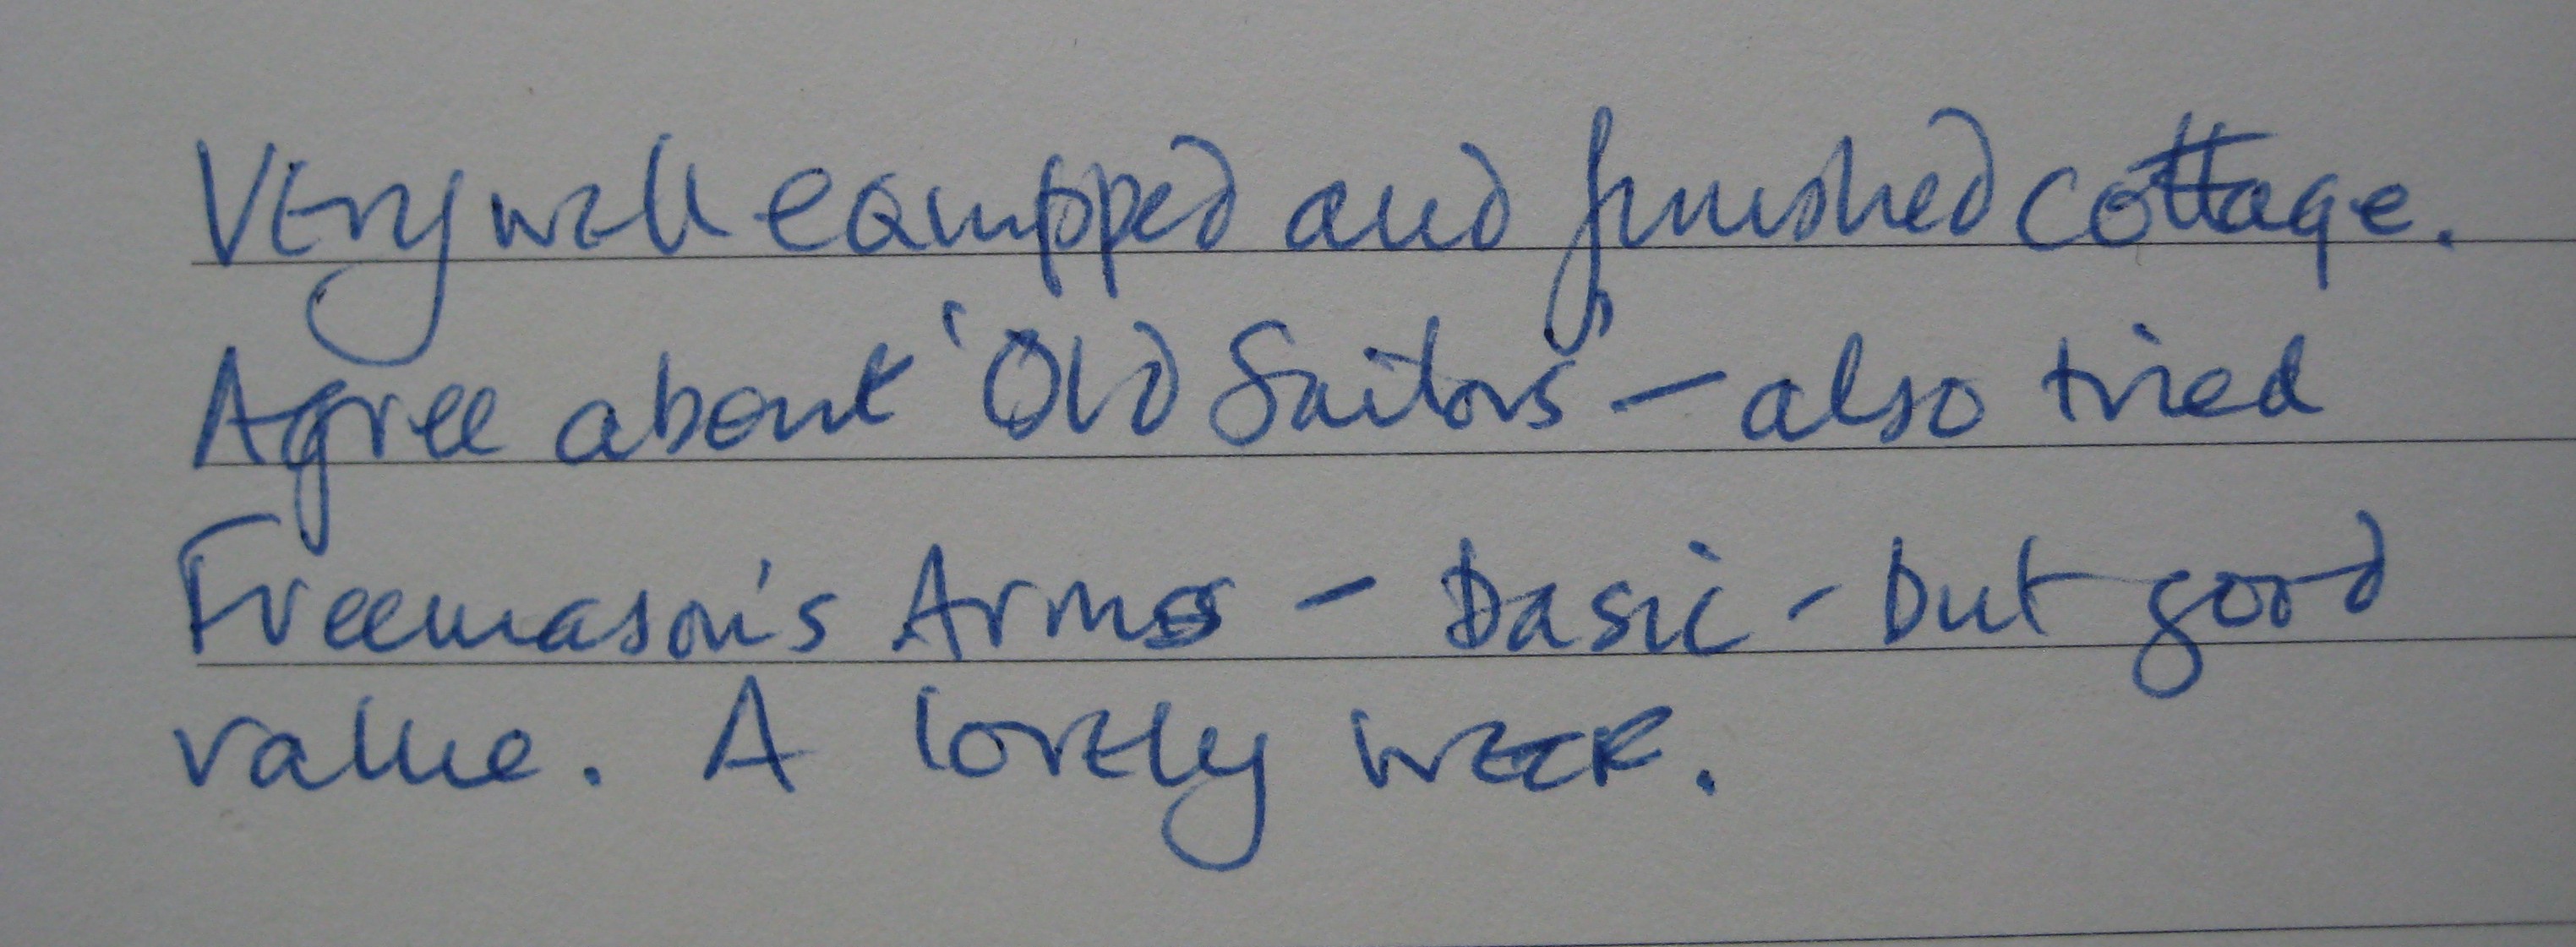 Very well equipped and finished cottage.
Agree about 'Old Sailors' – also tried
Freemason's Arms – basic – but good
value. A lovely week.